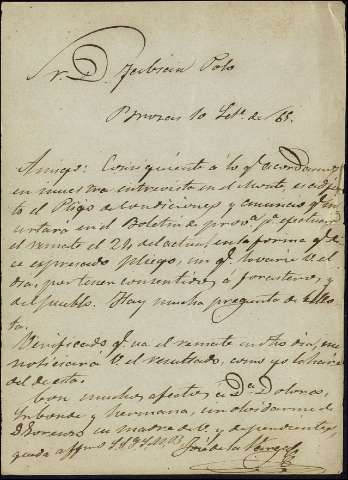 Sr. D. Fabian Polo
Brozas 10 Set.e de 65.
Amigo: Consiguiente a lo q.e acordamos
en nuestra entrevista en el Monte, es adjun
to el Pligo de condiciones y anuncio q.e in
sertara en el Boletin de prov.a p.a efectuar
el remate el 24 del actual, en la forma q.e di
ce espresado pliego, sin q.e lo varie V. el
dia, por tener consentidos a forasteros, y
del pueblo. Hay mucha pregunta de bellota.
Verificado q.e sea el remate en dho dia, me
noticiará V. el resultado, como yo lo haré
del de esta.
Con muchos afectos a D.a Dolores,
y hermana, sin olvidarme de
D. Lorenzo su madre de V. y dependientes,
queda affmo S.S.Q.S.M.B.
José de la